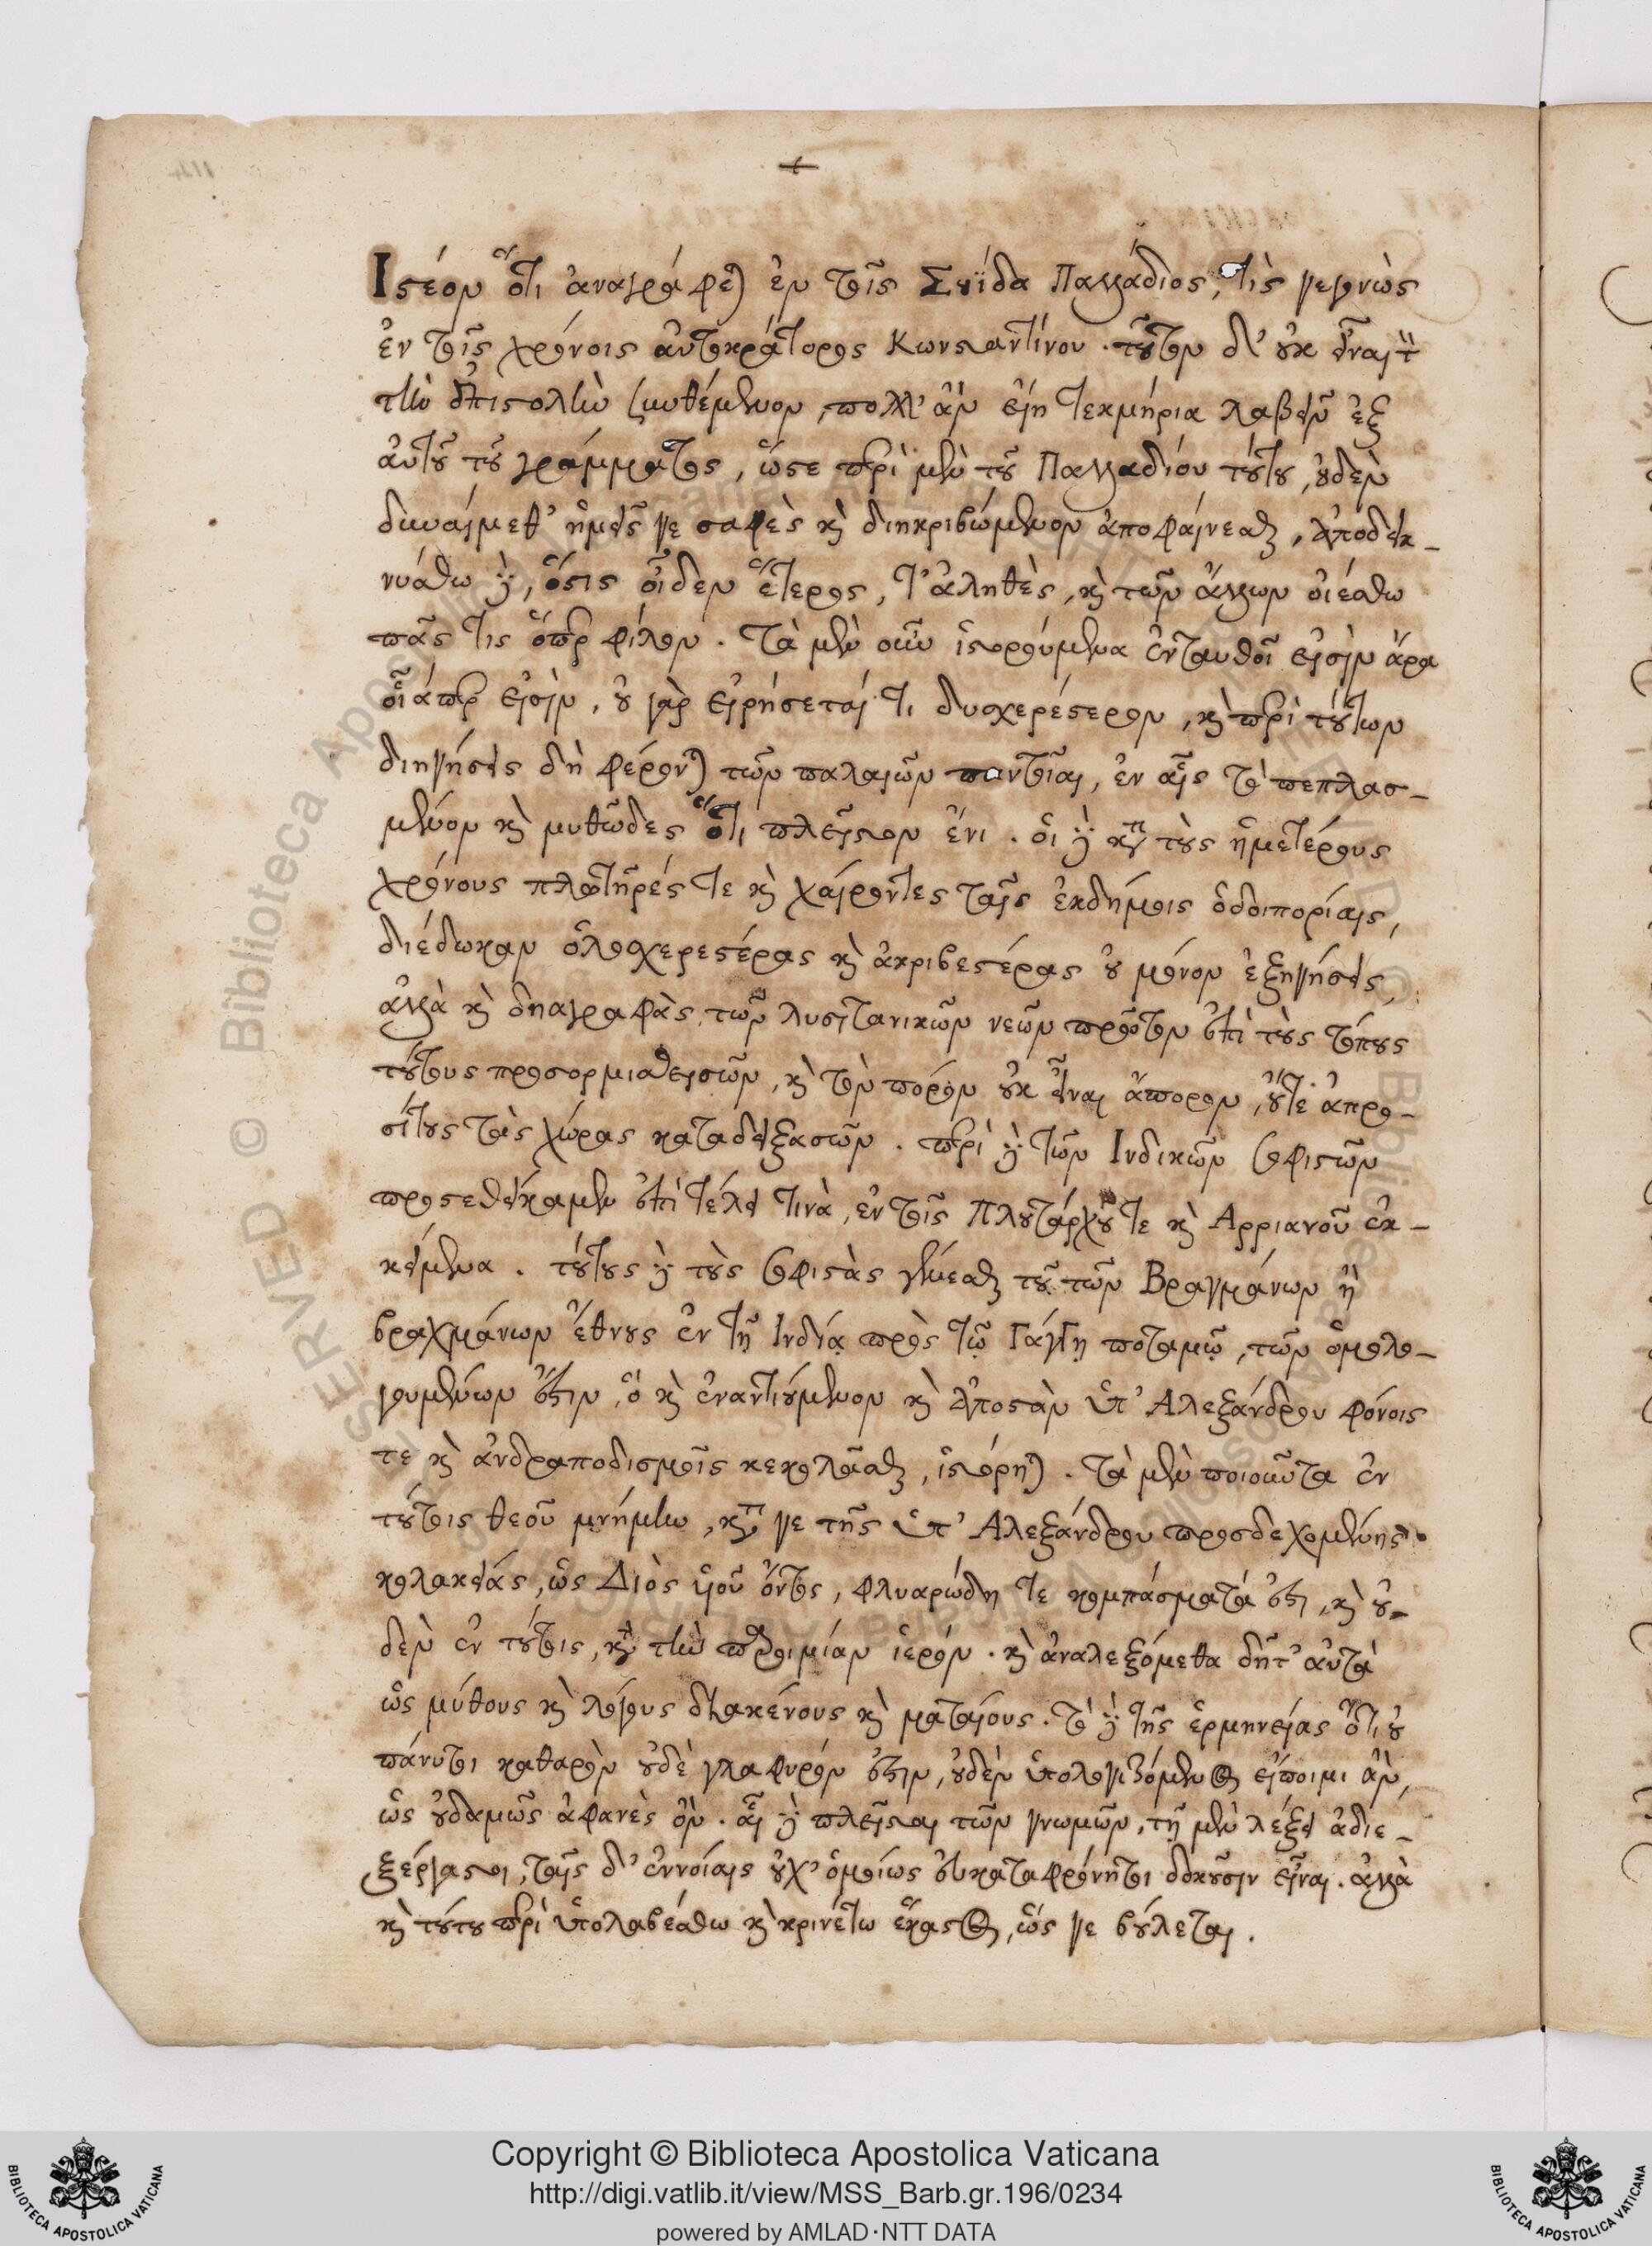 Ἰστέον ὅτι ἀναγράφεται ἐν τοῖς Σουΐδα Παλλάδιος, τὶς γεγονὼς
ἐν τοῖς χρόνοις αὐτοκράτορος Κωνσταντίνου. τοῦτον δ' οὐκ εἶναι τὸν
τὴν ἐπιστολὴν συνθέμενον, πολλ' ἂν εἴη τεκμήρια λαβεῖν ἐξ
αὐτοῦ τοῦ γράμματος, ὥστε περὶ μὲν τοῦ Παλλαδίου τούτου, οὐδὲν
δυναίμεθ' ἡμεῖς γε σαφὲς καὶ διηκριβώμενον ἀποφαίνεσθαι, ἀποδεικ-
νύσθω δὲ, ὅστις οἶδεν ἕτερος, τ' ἀληθὲς, καὶ τῶν ἄλλων οἰέσθω
πᾶς τις ὅπερ φίλον. Τὰ μὲν οὖν ἱστορούμενα ἐνταυθοῖ εἰσὶν ἄρα
οἷάπερ εἰσὶν, οὐ γὰρ εἰρήσεταί τι δυσχερέστερον, καὶ περὶ τούτων
διηγήσεις δὴ φέρονται τῶν παλαιῶν παντοῖαι, ἐν αἷς τὸ πεπλασ-
μένον καὶ μυθῶδες ὅτι πλεῖστον ἔνι. οἱ δὲ κατὰ τοὺς ἡμετέρους
χρόνους πλωτῆρές τε καὶ χαίροντες ταῖς ἐκδήμοις ὁδοιπορίαις,
διέδωκαν ὁλοσχερεστέρας καὶ ἀκριβεστέρας οὐ μόνον ἐξηγήσεις,
ἀλλὰ καὶ διαγραφὰς, τῶν λυσιτανικῶν νεῶν πρῶτον ἐπὶ τοὺς τόπους
τούτους προσορμισθεισῶν, καὶ τὸν πόρον οὐκ εἶναι ἄπορον, οὔτε ἀπρο-
σίτους τὰς χώρας καταδειξασῶν. περὶ δὲ τῶν Ἰνδικῶν σοφιστῶν
προσεθείκαμεν ἐπὶ τέλει τινὰ, ἐν τοῖς Πλουτάρχου τε καὶ Ἀρριανοῦ ἐκ-
κείμενα. τούτους δὲ τοὺς σοφιστὰς γενέσθαι τοῦ τῶν Βραγμάνων ἢ
βραχμάνων ἔθνους ἐν τῇ Ἰνδίᾳ πρὸς τῷ Γάγγῃ ποταμῷ, τῶν ὁμολο-
γουμένων ἐστὶν, ὃ καὶ ἐναντιούμενον καὶ ἀποστὰν ὑπ' Ἀλεξάνδρου φόνοις
τε καὶ ἀνδραποδισμοῖς κεκολάσθαι, ἱστόρηται. Τὰ μὲν ποιοῦντα ἐν
τούτοις θεοῦ μνήμην, κατά γε τῆς ὑπ' Ἀλεξάνδρου προσδεχομένης
κολακείας, ὡς Διὸς υἱοῦ ὄντος, φλυαρώδη τε κομπάσματά ἐστι, καὶ οὐ-
δὲν ἐν τούτοις, κατὰ τὴν παροιμίαν ἱερόν. καὶ ἀναλεξόμεθα δῆτ' αὐτὰ
ὡς μύθους καὶ λόγους διακένους καὶ ματαίους. Τὸ δὲ τῆς ἑρμηνείας ὅτι οὐ
πάνυ τι καθαρὸν οὐδὲ γλαφυρόν ἐστιν, οὐδὲν ὑπολογιζόμενος εἴποιμι ἂν,
ὡς οὐδαμῶς ἀφανὲς ὄν. αἱ δὲ πλεῖσται τῶν γνωμῶν, τῇ μὲν λέξει ἀδιε-
ξέργαστοι, ταῖς δ' ἐννοίαις οὐχ' ὁμοίως εὐκαταφρόνητοι δοκοῦσιν εἶναι. ἀλλὰ
καὶ τούτου περὶ ὑπολαβέσθω καὶ κρινέτω ἕκαστος, ὥς γε βούλεται.
Copyright © Biblioteca Apostolica Vaticana
http://digi.vatlib.it/view/MSS_Barb.gr.196/0234
powered by AMLAD·NTT DATA